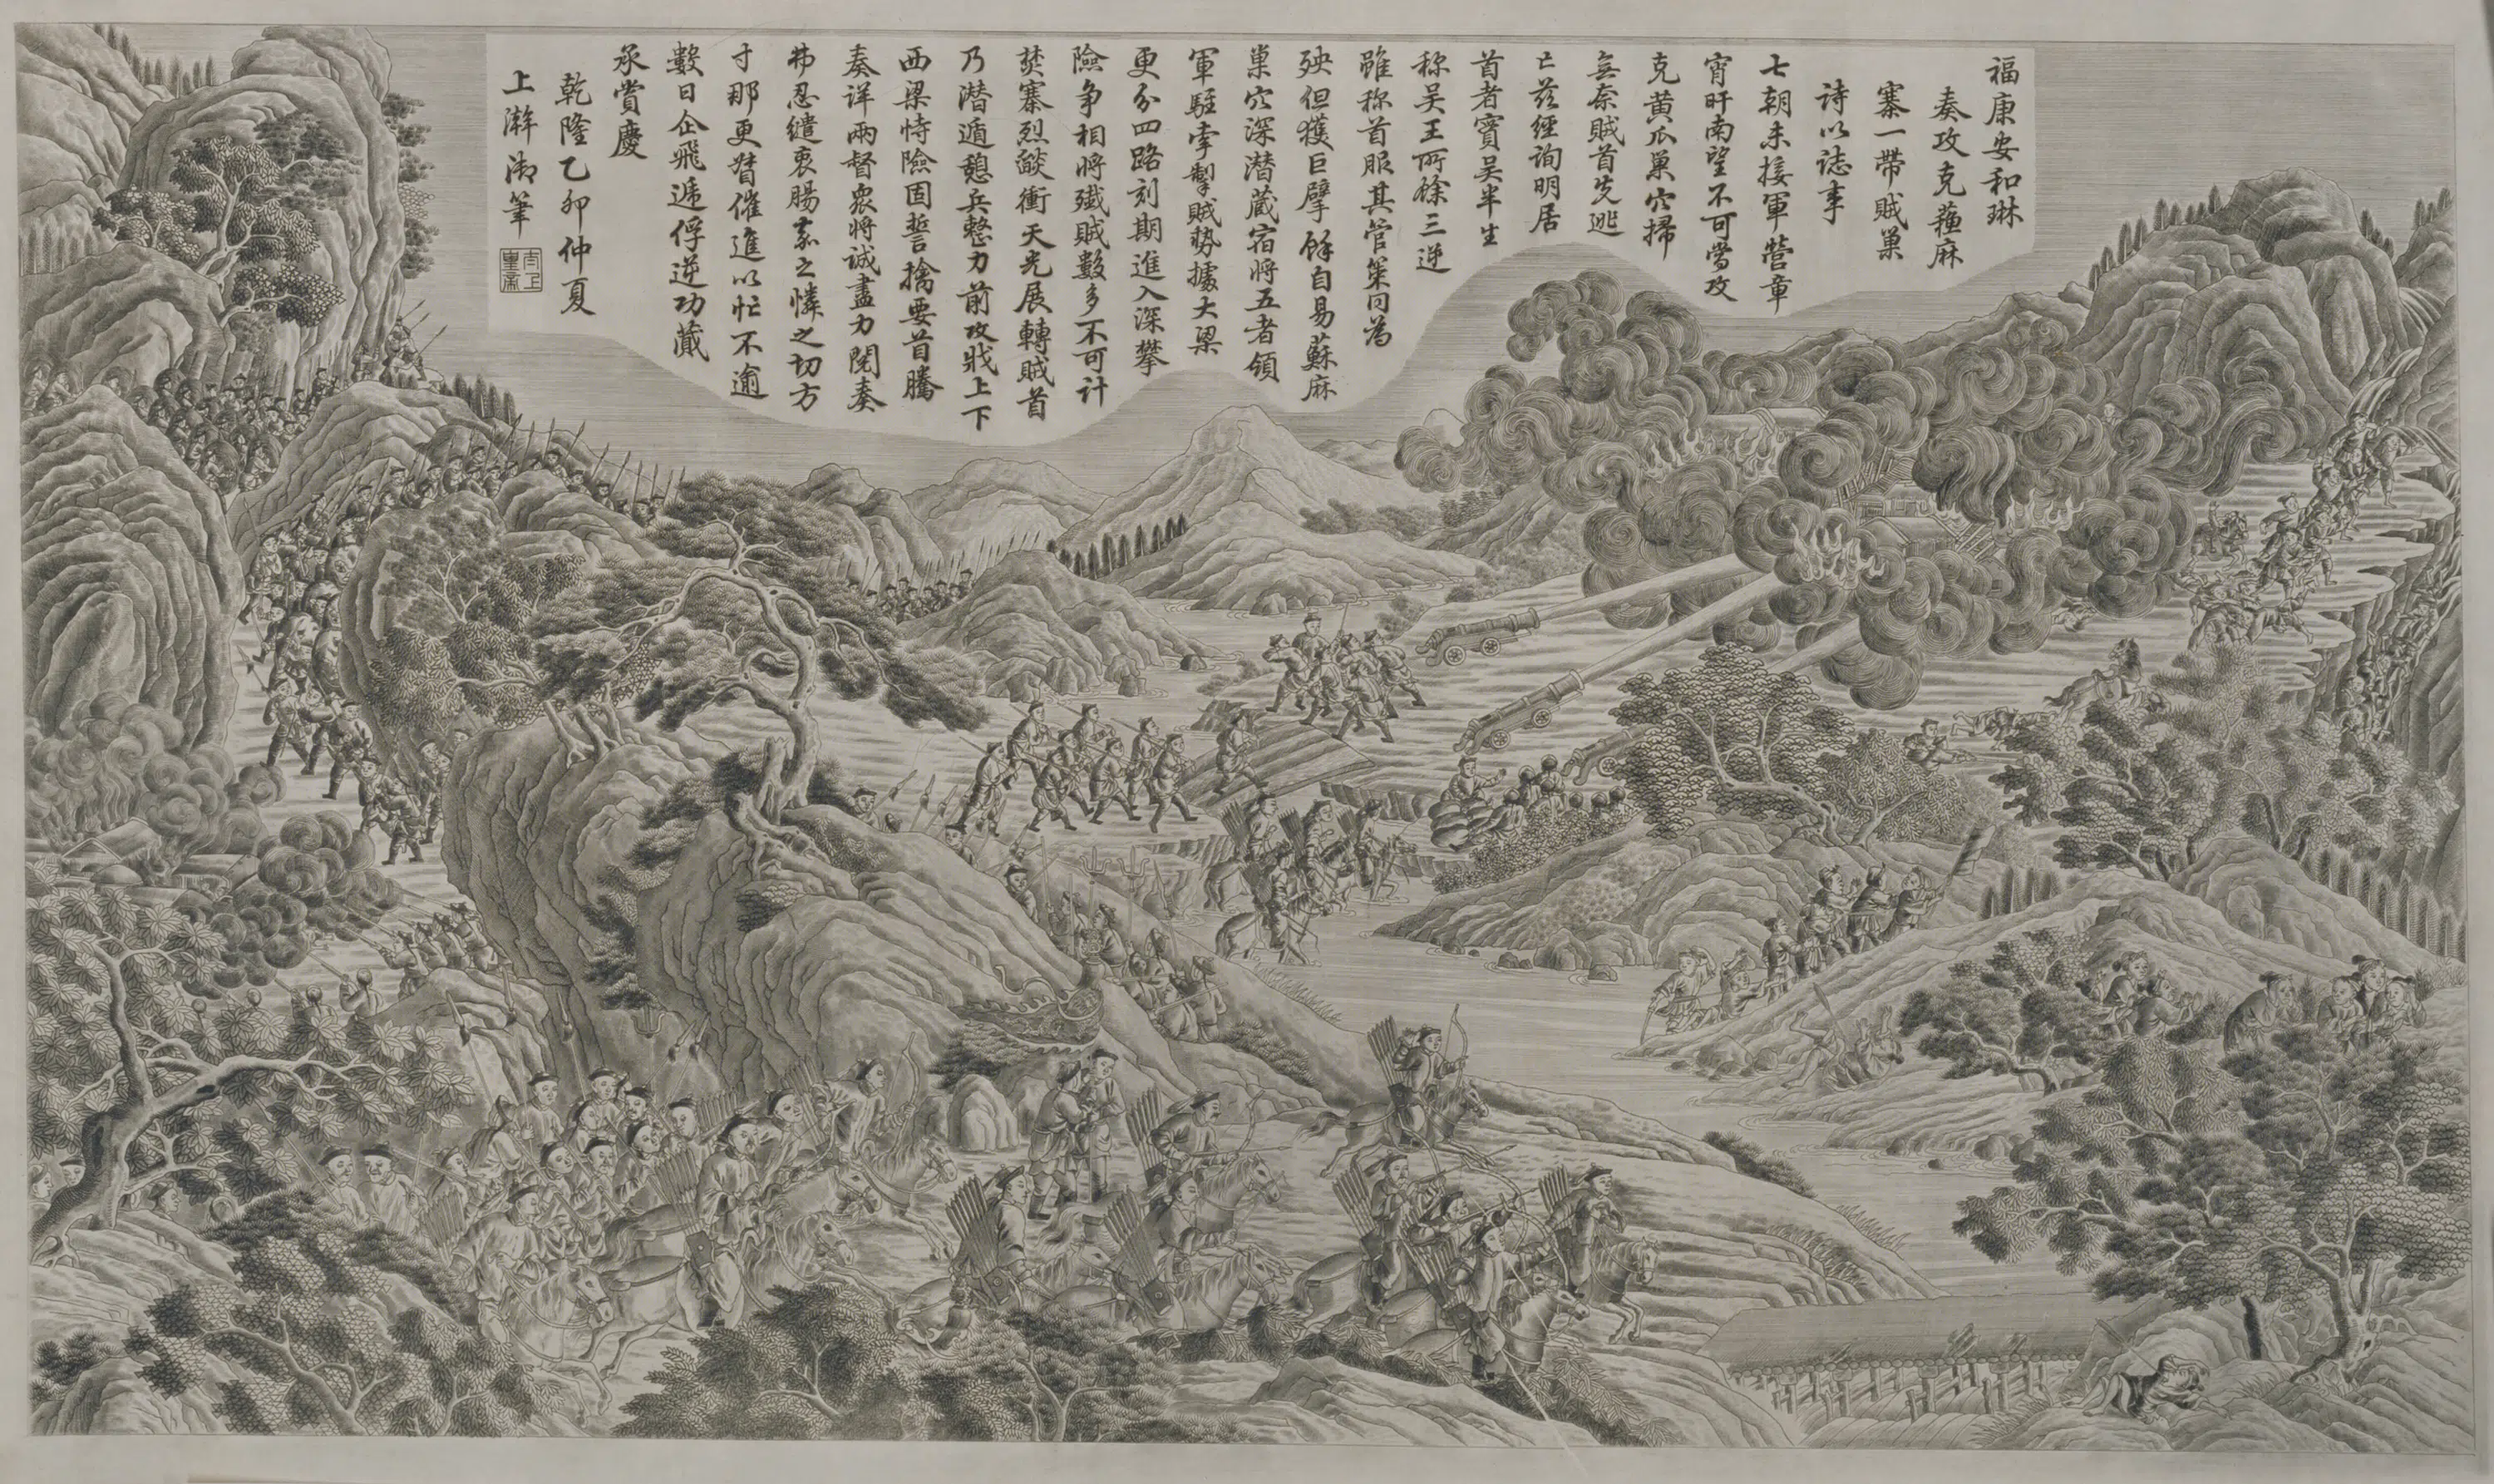 福康安和琳
奏攻克蘓麻
寨一帶賊巢
詩以誌事
七朝未接軍營章
宵旰南望不可當攻
克黃瓜巢穴掃
無奈賊首先逃
亡茲經詢明居
首者實吴半生
稱吴王所餘三逆
雖称首服其管策同為
殃但獲巨擘餘自易蘇麻
巢穴深潛蔵宿將五者領
軍駐牽掣賊勢據大梁
更分四路刻期進入深攀
險争相將殲賊數多不可计
焚寨烈燄衝天光展轉賊首
乃潛遁憩兵整力前攻戕上下
西梁恃險固誓擒要首騰
奏详兩督衆將诚盡力閱奏
弗忍繾衷腸嘉之憐之切方
寸那更督催進以忙不逾
數日企飛遞俘逆功蕆
承賞慶
乾隆乙卯仲夏
上澣御筆
太上
皇帝